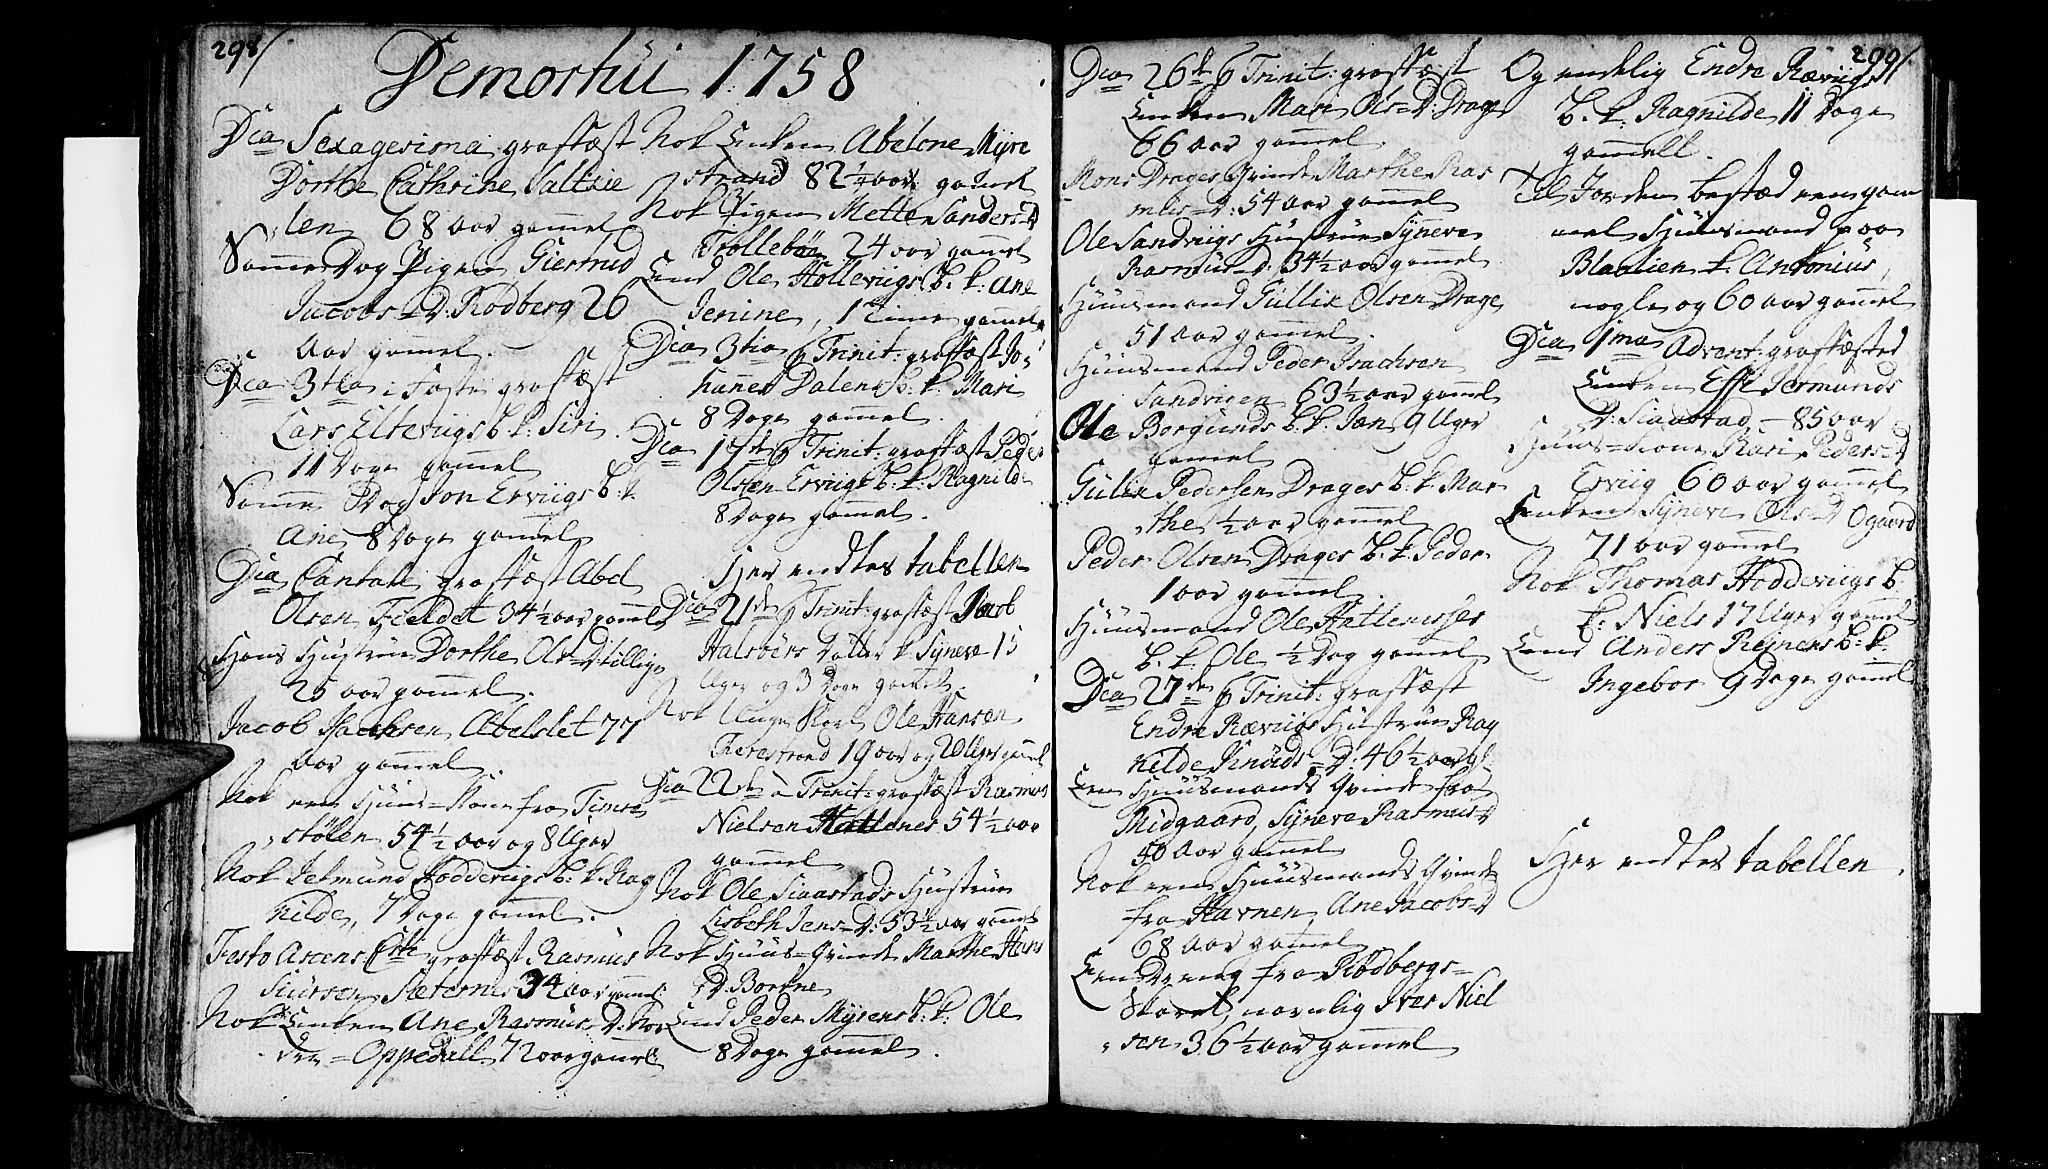 298/
Demortui 1758
Dca Sexagesima graffæst
Dorthe Cathrine Saltzie
len 68 aar gammel
Samme Dag Pigen Giertrud
Jacobs-D. Rodberg 26
Aar gammel.
Dca 3tia i Faste graffæst
Lars Eltevigs b. k. Siri
11 Dage gammel
Samme Dag Jon Erviigs b. k.
Ane 8 Dage gammel
Dca Cantate graffæst Abel
Olsen Fieldet 34½ aar gammel
Hans Hustrue Dorthe Ols-D tillige
25 aar gammel.
Jacob Jsachsen Abelslet 77
Aar gammel
Nok een Huus-Kone fra
stølen 54½ aar og 8 Uger
Nok Jetmund Hoddevigs b. k. Rag
nilde, 7 Dage gammel.
Festo Ascens Chti graffæst Rasmus
Siursen Sæternes 34 aar gammel
Nok Enken Ane Rasmus-D. Nor
dre-Oppedall 72 aar gammel
Nok Enken Abelone Myre
strand 82¼ aar gammel
Nok Pigen Mette Sanders-D
Trollebøn 24 aar gammel
End Ole Hollevigs b. k. Ane
Jenine, 1 Time gammel
Dca 3tia p Trinit: graffæst Jo-
hannes Dalens b. k. Mari
8 Dage gammel.
Dca 17de p Trinit: graffæst Peder
Olsen Ervigs b. k. Ragnilde
8 Dage gammel.
Her endtes tabellen
Dca 21de p Trinit: graffæst Jacob
Halsbørs Datter k. Syneve 15
Uger og 3 Dage gammel.
Nok Unge Karl Ole Hansen
19 aar og 20 Uger gammel
Dca 22de a Trinit: graffæst Rasmus
Nielsen Hatlenes 54½ aar
gammel
Nok Ole Siaastads Hustrue
Lisbeth Jens-D: 53½ aar gammel
Nok Huus-Qvinde Marthe Hans
D. Bortne
End Peder Myrens b. k. Ole
8 Dage gammel.
299/
Dca 26de p Trinit: graffæst
Enken Mari Ols-D: Drage
66 aar gammel.
Mons Drages Qvinde Marthe Ras
mus-D: 54 aar gammel
Ole Sandviigs Hustrue Syneve
Rasmus-D: 34½ aar gammel
Huusmand Gullix Olsen Drage
51 aar gammel.
Huusmand Peder Jsachsen
Sandvigen 63½ aar gammel
Ole Borgunds b. k. Jan 9 Uger
gammel
Gullix Pedersen Drages b. k. Mar
the ½ aar gammel
Peder Olsen Drages b. k. Peder
1 aar gammel.
Huusmand Ole Hatlenesses
b. k. Ole ½ Dag gammel
Dca 27de p Trinit: graffæst
Endre Rævigs Hustrue Rag
nilde Knuds-D: 46½ aar gl.
Een Huusmands Qvinde fra
Midgaard, Syneve Rasmus-D
50 Aar gammel
Nok een Huusmands Qvinde
fra Havnen, Ane Jacobs-D
68 aar gammel
Een Dreng fra Rodbergs-
Skaret, navnlig Iver Niel
sen 36½ aar gammel
Og endelig Endre Ræviigs
b. k. Ragnilde 11 Dage
gammell.
Til Jorden bestæd een gam
mel Huusmand paa
k. Antonius,
nogle og 60 aar gammel
Dca 1ma Advent: graffæsted
Enken Effi Jermunds
D: Siaastad, - 85 aar
Huus-Kone Kari Peders-D
Erviig 60 aar gammel
Enken Syneve Ols-D Ogaard
71 aar gammel
Nok Thomas Hoddevigs b.
k: Niels 17 Uger gammel
End Anders Refnens b. k.
Ingebor 9 Dage gammel
Her endtes tabellen.